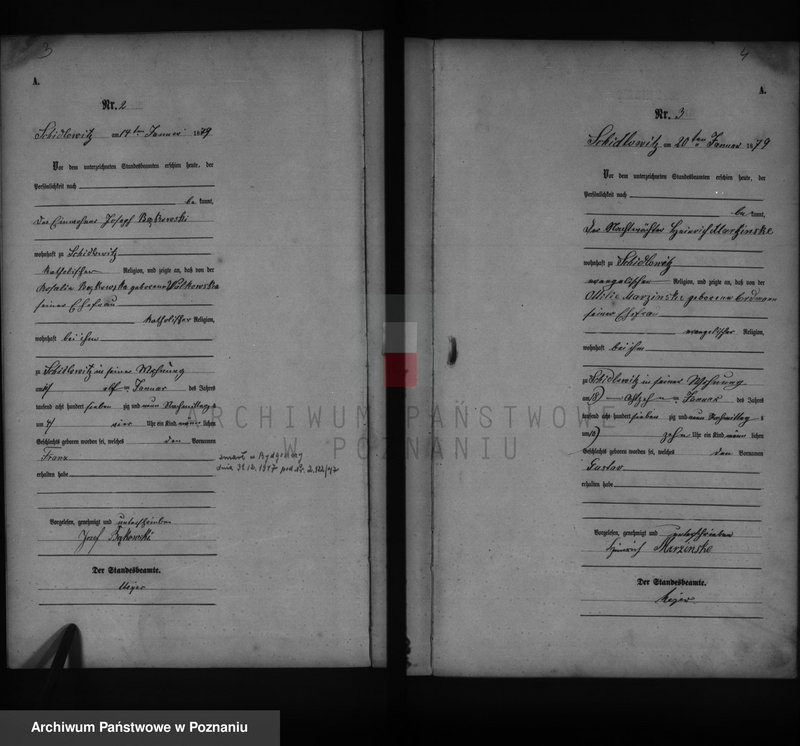 3
A.
Nr. 2
Schidlowitz am 14ten Januar 1879
Vor dem unterzeichneten Standesbeamten erschien heute, der
Persönlichkeit nach
be kannt,
Der Einwohner Joseph Bąkowski
wohnhaft zu Schidlowitz
katholischer Religion, und zeigte an, daß von der
Rosalia Bąkowska geborene Wolkowska
seiner Ehefrau
katholischer Religion,
wohnhaft bei ihm
zu Schidlowitz in seiner Wohnung
am elf ten Januar des Jahres
tausend acht hundert sieben zig und neun Nachmittag s
um 4) vier Uhr ein Kind männ lichen
Geschlechts geboren worden sei, welches den Vornamen
Franz
erhalten habe
zmarł w Bydgoszczy
dnia 31.12.1947 pod Nr.
Vorgelesen, genehmigt und unterschrieben
Josef Bąkowski
Der Standesbeamte.
Meyer
4
A.
Nr. 3
Schidlowitz am 20ten Januar 1879
Vor dem unterzeichneten Standesbeamten erschien heute, der
Persönlichkeit nach
be kannt,
Der Nachtwächter Heinrich Marzinske
wohnhaft zu Schidlowitz
evangelischer Religion, und zeigte an, daß von der
Ottilie Marzinske geborene Erdmann
seiner Ehefrau
evangelischer Religion,
wohnhaft bei ihm
zu Schidlowitz in seiner Wohnung
am 18) Achtzehn ten Januar des Jahres
tausend acht hundert sieben zig und neun Vormittag s
um 10) zehn Uhr ein Kind männ lichen
Geschlechts geboren worden sei, welches den Vornamen
Gustav
erhalten habe
Vorgelesen, genehmigt und unterschrieben
Heinrich Marzinske
Der Standesbeamte.
Meyer
ARCHIWUM PAŃSTWOWE
W POZNANIU
Archiwum Państwowe w Poznaniu